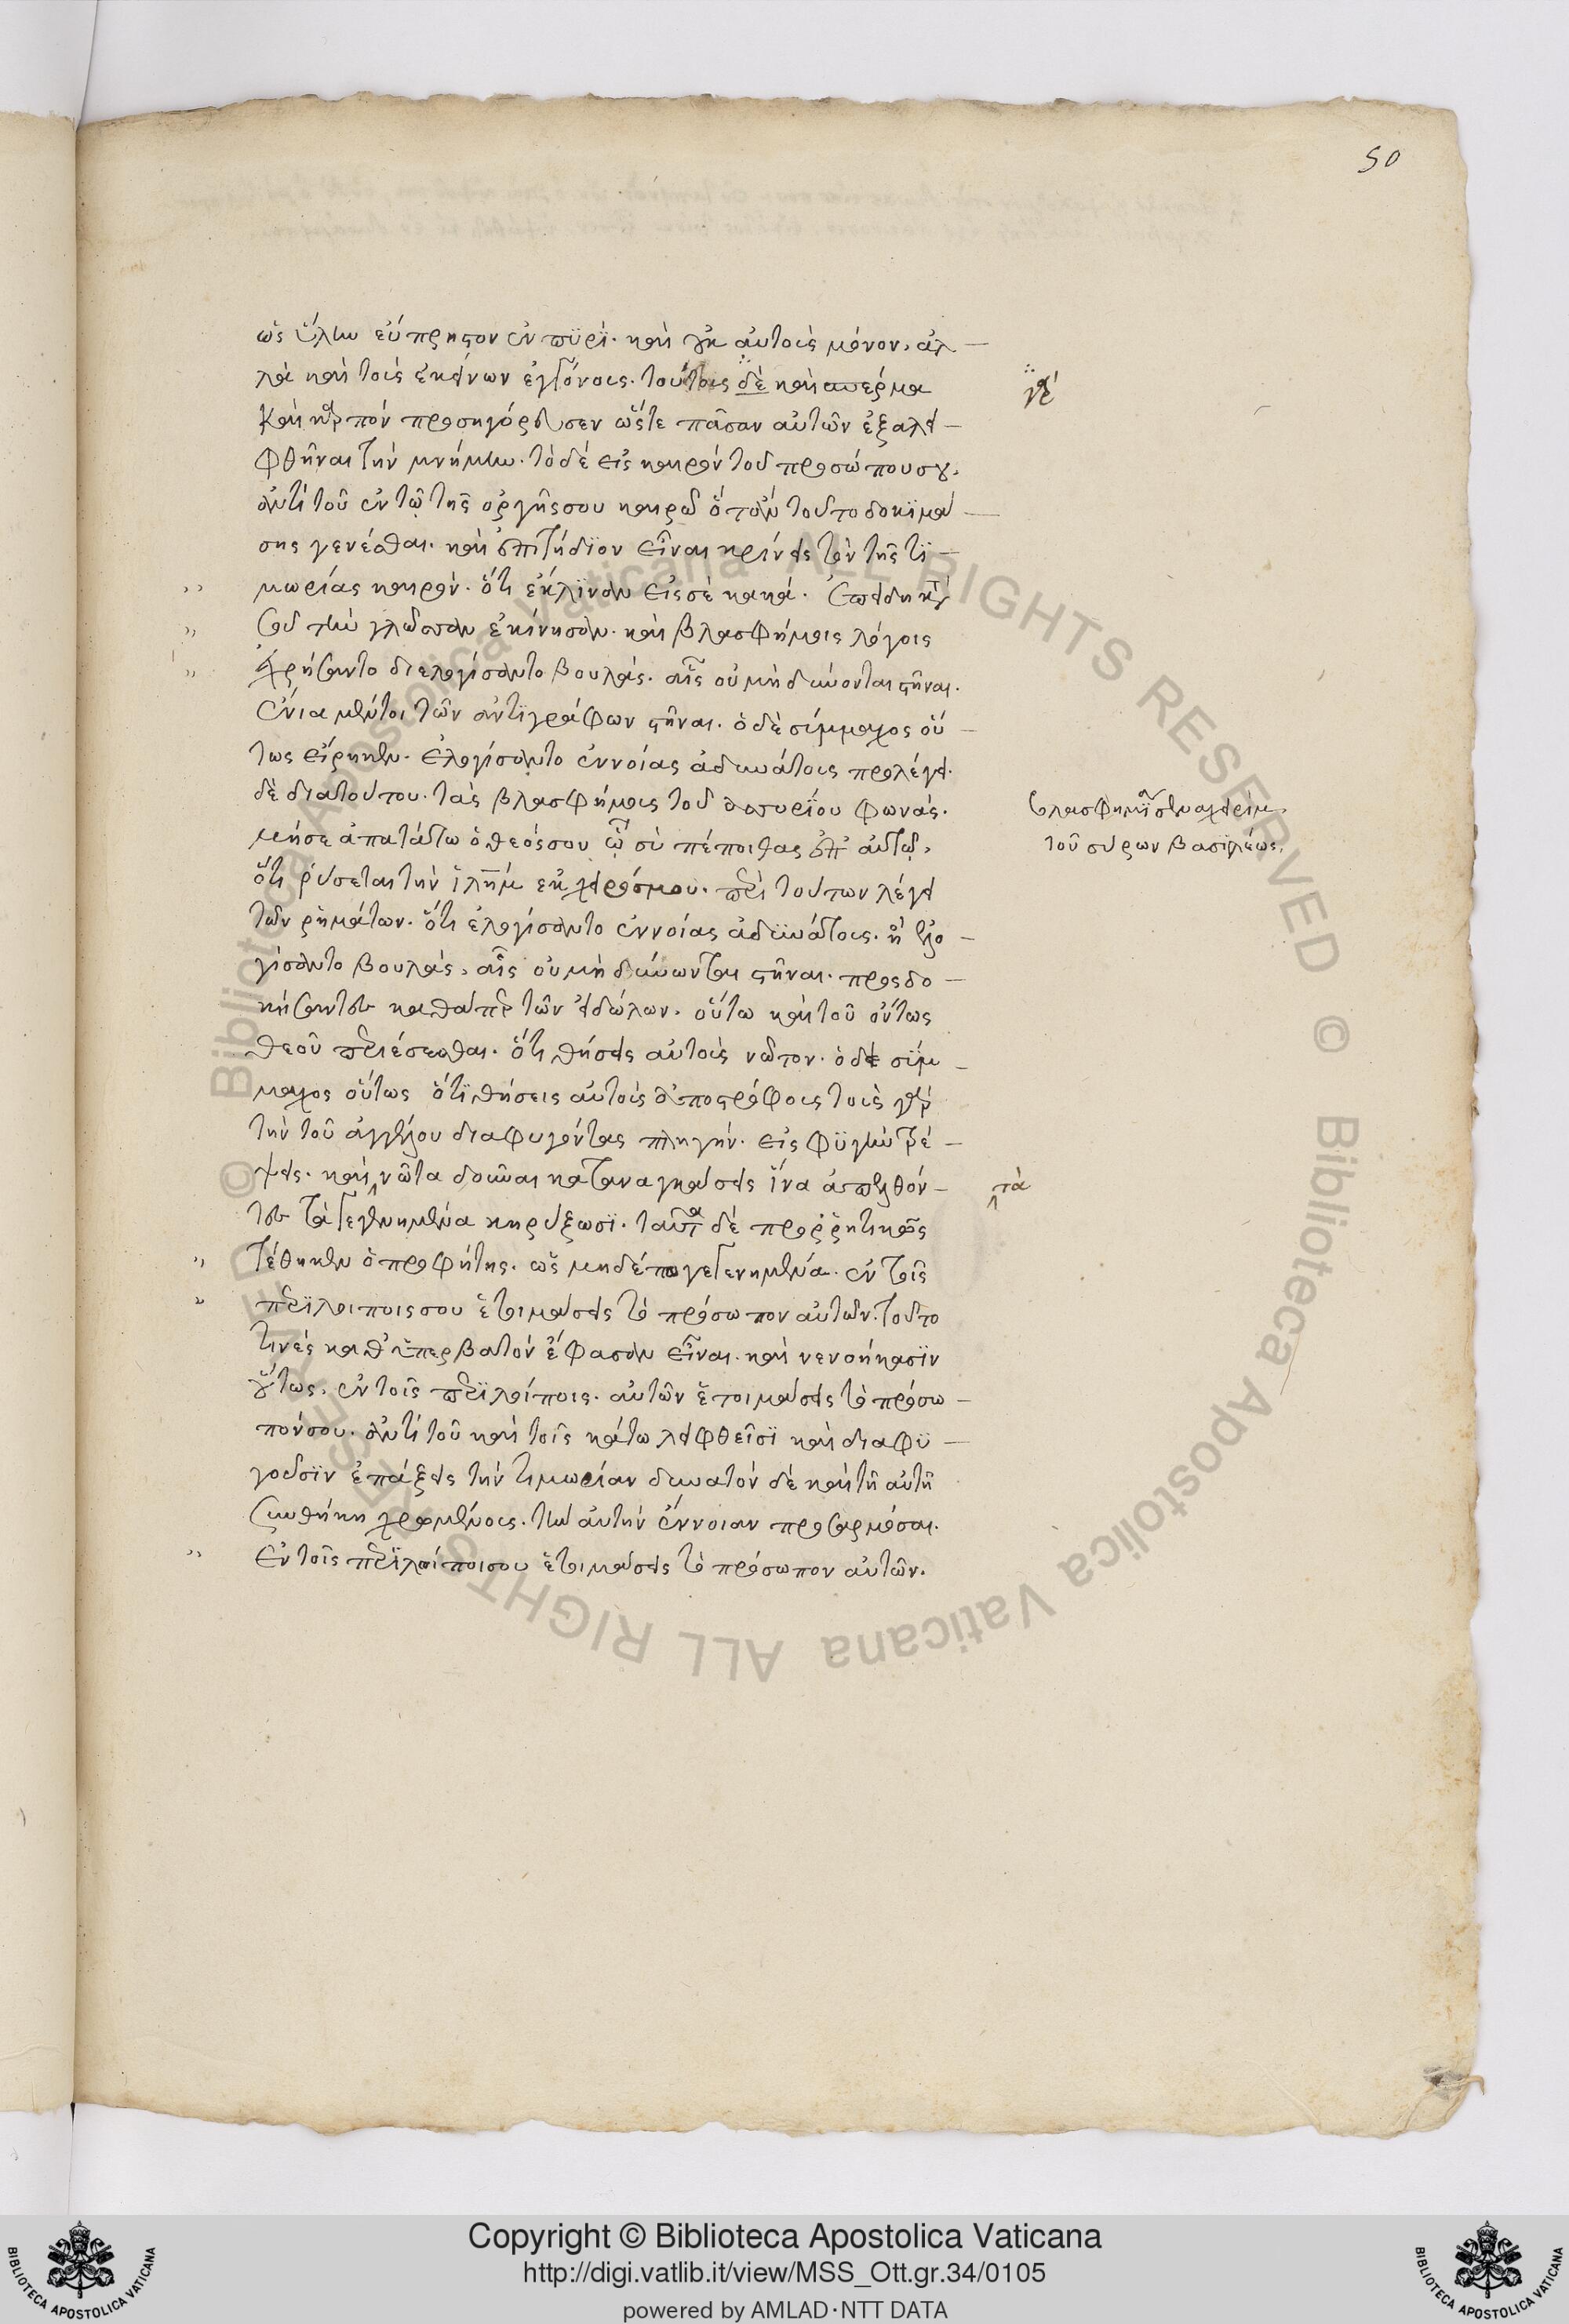 50
ὡς ὕλην εὔπρηστον ἐν πϋρϊ. καὶ οὐκ αὐτοὺς μόνον, ἀλ –
λὰ καὶ τοὺς ἐκείνων ἐγγόνους. τούτους δὲ καὶ σπέρμα
γὰρ
καὶ καρπὸν προσηγόρευσεν ὥστε πᾶσαν αὐτῶν ἐξαλει –
φθῆναι τὴν μνήμην. τὸ δὲ εἰς καιρὸν τοῦ προσώπου σου.
ἀντὶ τοῦ ἐν τῷ τῆς ὀργῆς σου καιρῶ ὅταν τοῦτο δοκϊμά –
σης γενέσθαι. καὶ ἐπιτήδϊον εἶναι κρίνεις τὸν τῆς τϊ –
,, μωρίας καιρόν. ὅτι ἔκλϊναν εἰς σὲ κακά.
,, σοῦ τὴν γλῶσσαν ἐκίνησαν. καὶ βλασφήμοις λόγοις
,, ἐχρήσαντο διελογίσαντο βουλὰς. αἷς οὐ μὴ δύνονται στῆναι.
ἔνια μέντοι τῶν ἀντϊγράφων στῆναι. ὁ δὲ σύμμαχος οὕ –
τως εἴρηκεν. ἐλογίσαντο ἐννοίας ἀδυνάτους προλέγει.
δὲ διὰ τούτου. τὰς βλασφήμοις τοῦ ἀσσυρΐου φωνάς.
βλασφημία σεναχειρὶμ
τοῦ σύρων βασιλέως.
μή σε ἀπατάτω ὁ θεός σου ᾧ σὺ πέποιθας ἐπ' αὐτῷ,
ὅτι ῥύσεται τὴν ϊλὴμ ἐκ χειρός μου. περὶ τούτων λέγει
τῶν ῥημάτων. ὅτι ἐλογίσαντο ἐννοίας ἀδϋνάτους. ἢ ἐλο –
γίσαντο βουλὰς, αἷς οὐ μὴ δύνωνται στῆναι. προσδο –
κήσαντες καθάπερ τῶν εἰδώλων. οὕτω καὶ τοῦ ὄντως
θεοῦ περιέσεσθαι. ὅτι θήσεις αὐτοὺς νῶτον. ὁ δὲ σϋμ –
μαχος οὕτως ὅτϊ θήσεις αὐτοὺς ἀποστρόφους τοὺς γὰρ
τὴν τοῦ ἀγγέλου διαφυγόντας πληγήν. εἰς φϋγὴν τρέ –
ψεις. καὶ ‸ νῶτα δοῦναι καταναγκάσεις ἵνα ἀπελθόν –
‸ τὰ
τες τὰ γεγενημένα κηρύξωσϊ. ταῦτα δὲ προῤῥητικῶς
,, τέθηκεν ὁ προφήτης. ὡς μηδέπω γεγενημένα. ἐν τοῖς
,, περϊλοίποις σου ἑτοιμάσεις τὸ πρόσωπον αὐτῶν. τοῦτο
τινὲς καθ' ὑπερβατὸν ἔφασαν εἶναι. καὶ νενοήκασϊν
οὕτως. ἐν τοῖς περϊλοίποις. αὐτῶν ἑτοιμάσεις τὸ πρόσω –
πόν σου. ἀντὶ τοῦ καὶ τοῖς κάτω λειφθεῖσϊ καὶ διαφϋ –
γοῦσϊν ἐπάξεις τὴν τιμωρίαν δυνατὸν δὲ καὶ τῆ αὐτῆ
συνθήκη χρωμένους. τὴν αὐτὴν ἔννοιαν προσαρμόσαι.
,, Ἐν τοῖς περϊλοίποισου ἑτοιμάσεις τὸ πρόσωπον αὐτῶν.
Copyright © Biblioteca Apostolica Vaticana
http://digi.vatlib.it/view/MSS_Ott.gr.34/0105
powered by AMLAD·NTT DATA